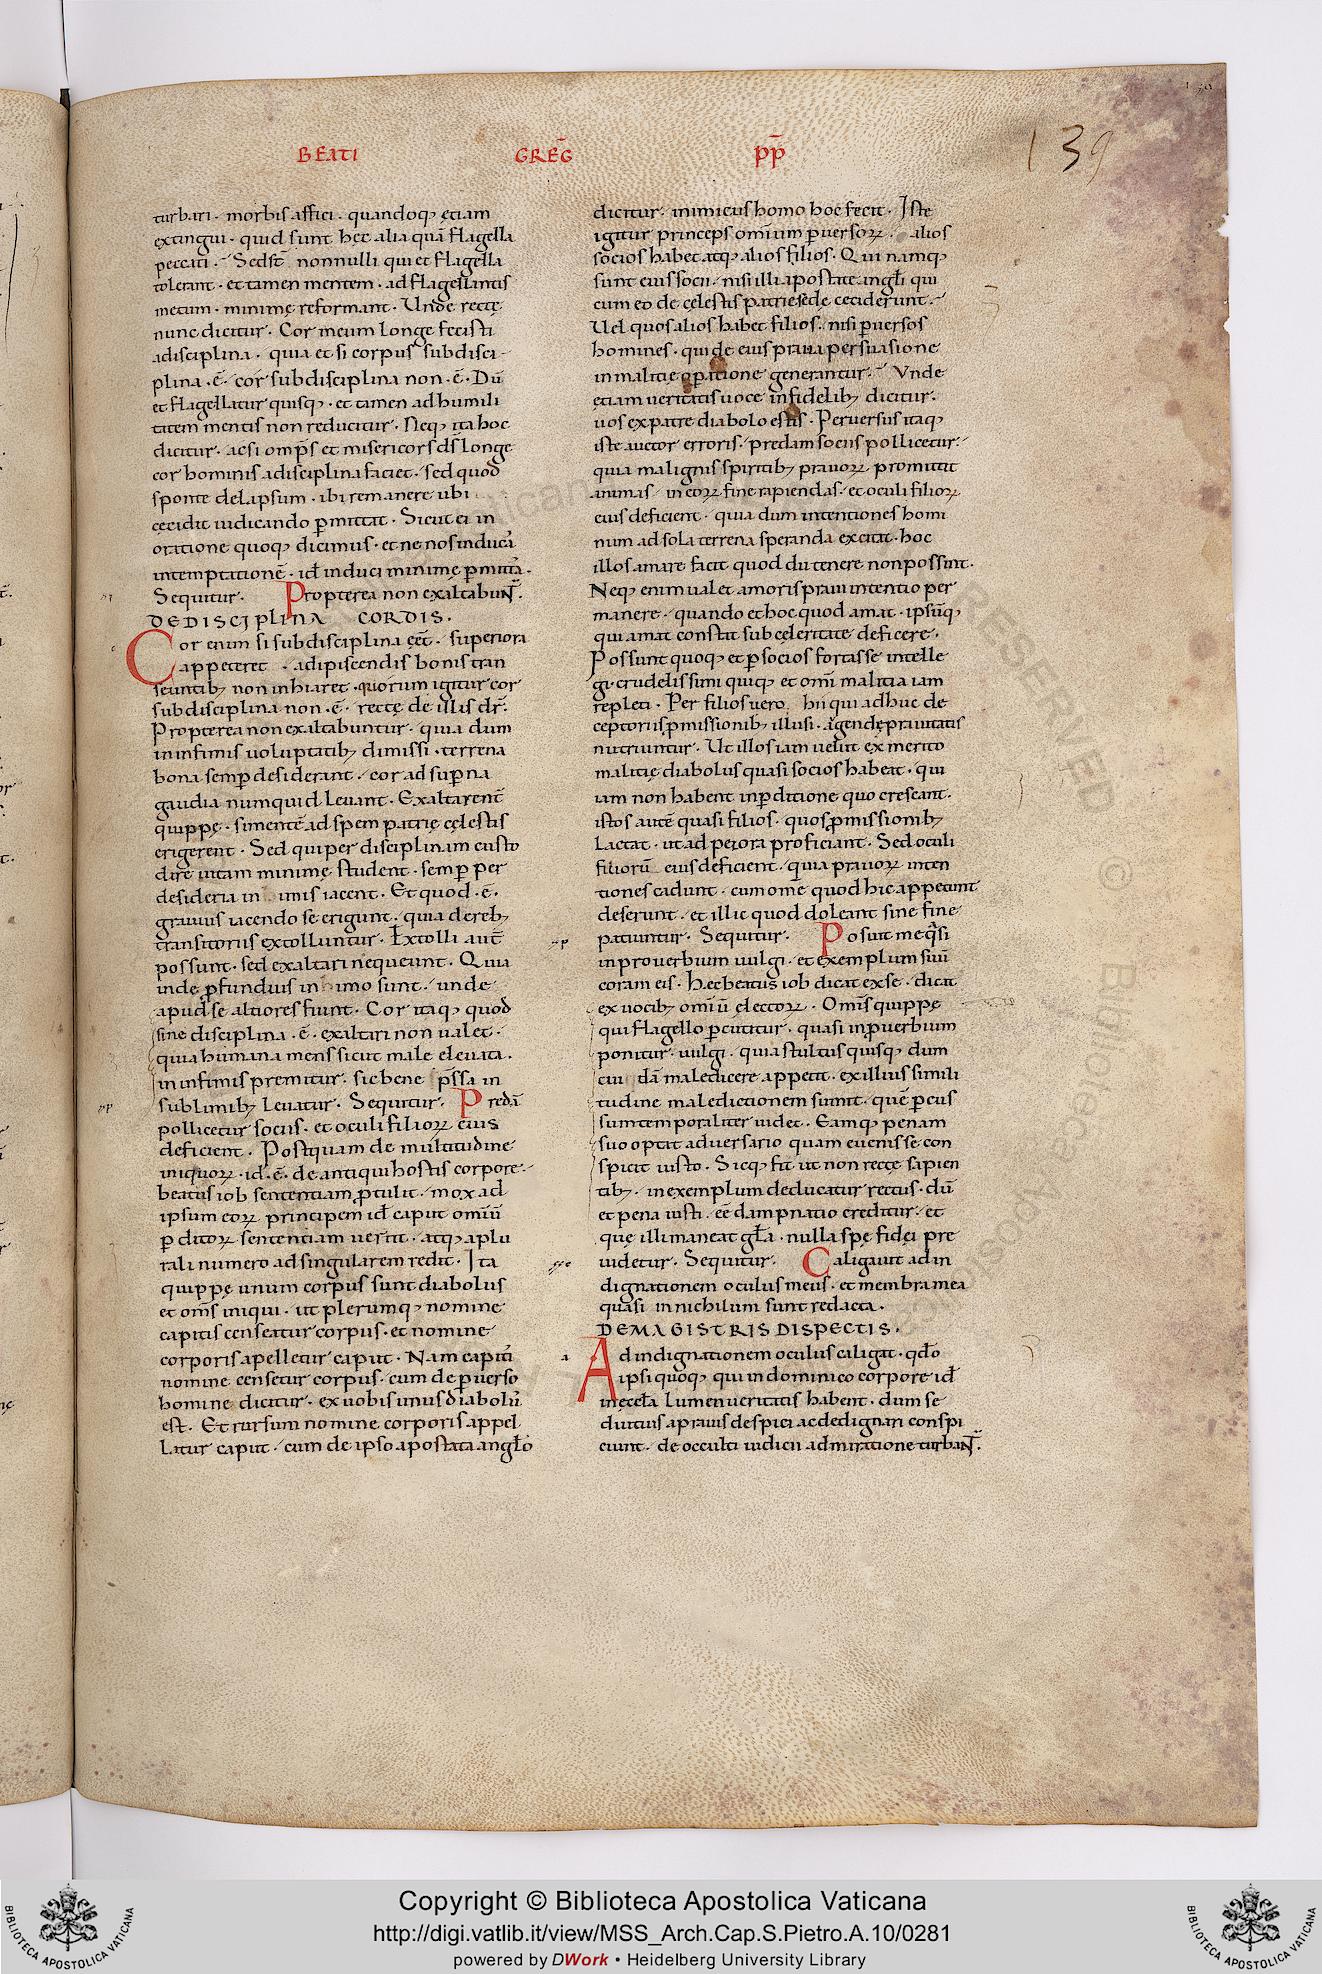 BEATI GREḠ pp̄
139
turbari · morbis affici · quandoq; ętiam
extingui · quid sunt hęc alia quā flagella
peccati · Sed st̄ nonnulli qui et flagella
tolerant · et tamen mentem · ad flagellantis
metum · minimę reformant · Unde rectę
nunc dicitur · Cor meum longe fecisti
a disciplina · quia et si corpus sub disci-
plina · ē · cor sub disciplina non · ē · Dū
et flagellatur quisq; · et tamen ad humili
tatem mentis non reducitur · Neq; ita hoc
dicitur · ac si omp̄s et misericors ds̄ longe
cor hominis a disciplina faciet · sed quod
sponte delapsum · ibi remanere ubi
cecidit iudicando p̄mittat · Sicut ei in
oratione quoq; dicimus · et ne nos inducā
in temptationē · id̄ induci minimę p̄mittā ·
Sequitur · Propterea non exaltabun̄t ·
DE DISCIPLINA CORDIS ·
Cor enim si sub disciplina eēt · superiora
appeteret · adipiscendis bonis tran
seuntib; non inhiaret · quorum igitur cor
sub disciplina non · ē · rectę de illis dr̄ ·
Propterea non exaltabuntur · quia dum
in infimis uoluptatib; dimissi · terrena
bona semp̄ desiderant · cor ad sup̄na
gaudia numquid leuant · Exaltarent̄
quippę · si mentē ad spem patrię cęlestis
erigerent · Sed qui per disciplinam custo
dire uitam minimę student · semp̄ per
desideria in imis iacent · Et quod · ē ·
grauius iacendo se erigunt · quia de reb;
transitoriis extolluntur · Extolli aut̄
possunt · sed exaltari nequeunt · Quia
inde p̄fundius in himo sunt · unde
apud se altiores fiunt · Cor itaq; quod
sine disciplina · ē · exaltari non ualet ·
quia humana mens sicut male eleuata ·
in infimis premitur · sic bene p̄ssa in
sublimib; leuatur · Sequitur · Predā
pollicetur sociis · et oculi filioꝝ eius
deficient · Postquam de multitudine
iniquoꝝ · id · ē · de antiqui hostis corpore ·
beatus iob sententiam p̄tulit · mox ad
ipsum eoꝝ principem id̄ caput omiū
p̄ditoꝝ sententiam uertit · atq; a plu
rali numero ad singularem redit · Ita
quippę unum corpus sunt diabolus
et om̄s iniqui · ut plerumq; nomine
capitis censeatur corpus · et nomine
corporis apelletur caput · Nam capitī
nomine censetur corpus · cum de p̄uerso
homine dicitur · ex uobis unus diabolū
est · Et rursum nomine corporis appel
latur caput · cum de ipso apostata anglo
dicitur · inimicus homo hoc fecit · Iste
igitur princeps omnium p̄uersoꝝ · alios
socios habet atq; alios filios · Qui namq;
sunt eius socii · nisi illi apostatę angli qui
cum eo de cęlestis patrię sede ceciderunt ·
Uel quos alios habet filios · nisi p̄uersos
homines · qui de eius praua persuasione
in malitię op̄ratione generantur · Vnde
ętiam ueritatis uoce infidelib; dicitur ·
uos ex patre diabolo estis · Peruersus itaq;
iste auctor erroris · predam sociis pollicetur ·
quia malignis spiritib; prauoꝝ promittit
animas · in eoꝝ fine rapiendas · et oculi filioꝝ
eius deficient · quia dum intentiones homi
num ad sola terrena speranda excitat · hoc
illos amare facit quod diu tenere non possint ·
Neq; enim ualet amoris praui intentio per
manere · quando et hoc quod amat · ipsūq;
qui amat constat sub celeritate deficere ·
Possunt quoq; et p̄ socios fortasse intelle
gi · crudelissimi quiq; et omī malitia iam
repleti · Per filios uero · hii qui adhuc de
ceptoriis p̄missionib; illusi · augendę prauitatis
nutriuntur · Ut illos iam uelut ex merito
malitię diabolus quasi socios habeat · qui
iam non habent in p̄ditione quo crescant ·
istos autē quasi filios · quos p̄missionib;
lactat · ut ad peiora proficiant · Sed oculi
filiorū eius deficient · quia prauoꝝ inten
tiones cadunt · cum ome quod hic appetunt
deserunt · et illic quod doleant sine fine
patiuntur · Sequitur · Posuit me qsi
in prouerbium uulgi · et exemplum suū
coram eis · Hęc beatus iob dicit ex se · dicit
ex uocib; omiū electoꝝ · Omīs quippę
qui flagello p̄cutitur · quasi in p̄uerbium
ponitur · uulgi · quia stultus quisq; dum
cui dā maledicere appetit · ex illius simili
tudine maledictionem sumit · quē p̄cus
sum temporaliter uidet · Eamq; penam
suo optat aduersario quam euenisse con
spicit iusto · Sicq; fit ut non rectę sapien
tib; in exemplum deducatur rectus · dū
et pena iusti · eē dampnatio creditur · et
quę illi maneat gl̄a · nulla spę fidei pre
uidetur · Sequitur · Caligauit ad in
dignationem oculus meus · et membra mea
quasi in nichilum sunt redacta ·
DE MAGISTRIS DISPECTIS ·
Ad indignationem oculus caligat · qdo
ipsi quoq; qui in dominico corpore id̄
in ęccła lumen ueritatis habent · dum se
diutius a prauis despici ac dedignari conspi
ciunt · de occulti iudicii admiratione turban̄t ·
Copyright © Biblioteca Apostolica Vaticana
http://digi.vatlib.it/view/MSS_Arch.Cap.S.Pietro.A.10/0281
powered by DWork • Heidelberg University Library
BIBLIOTECA APOSTOLICA VATICANA
BIBLIOTECA APOSTOLICA VATICANA